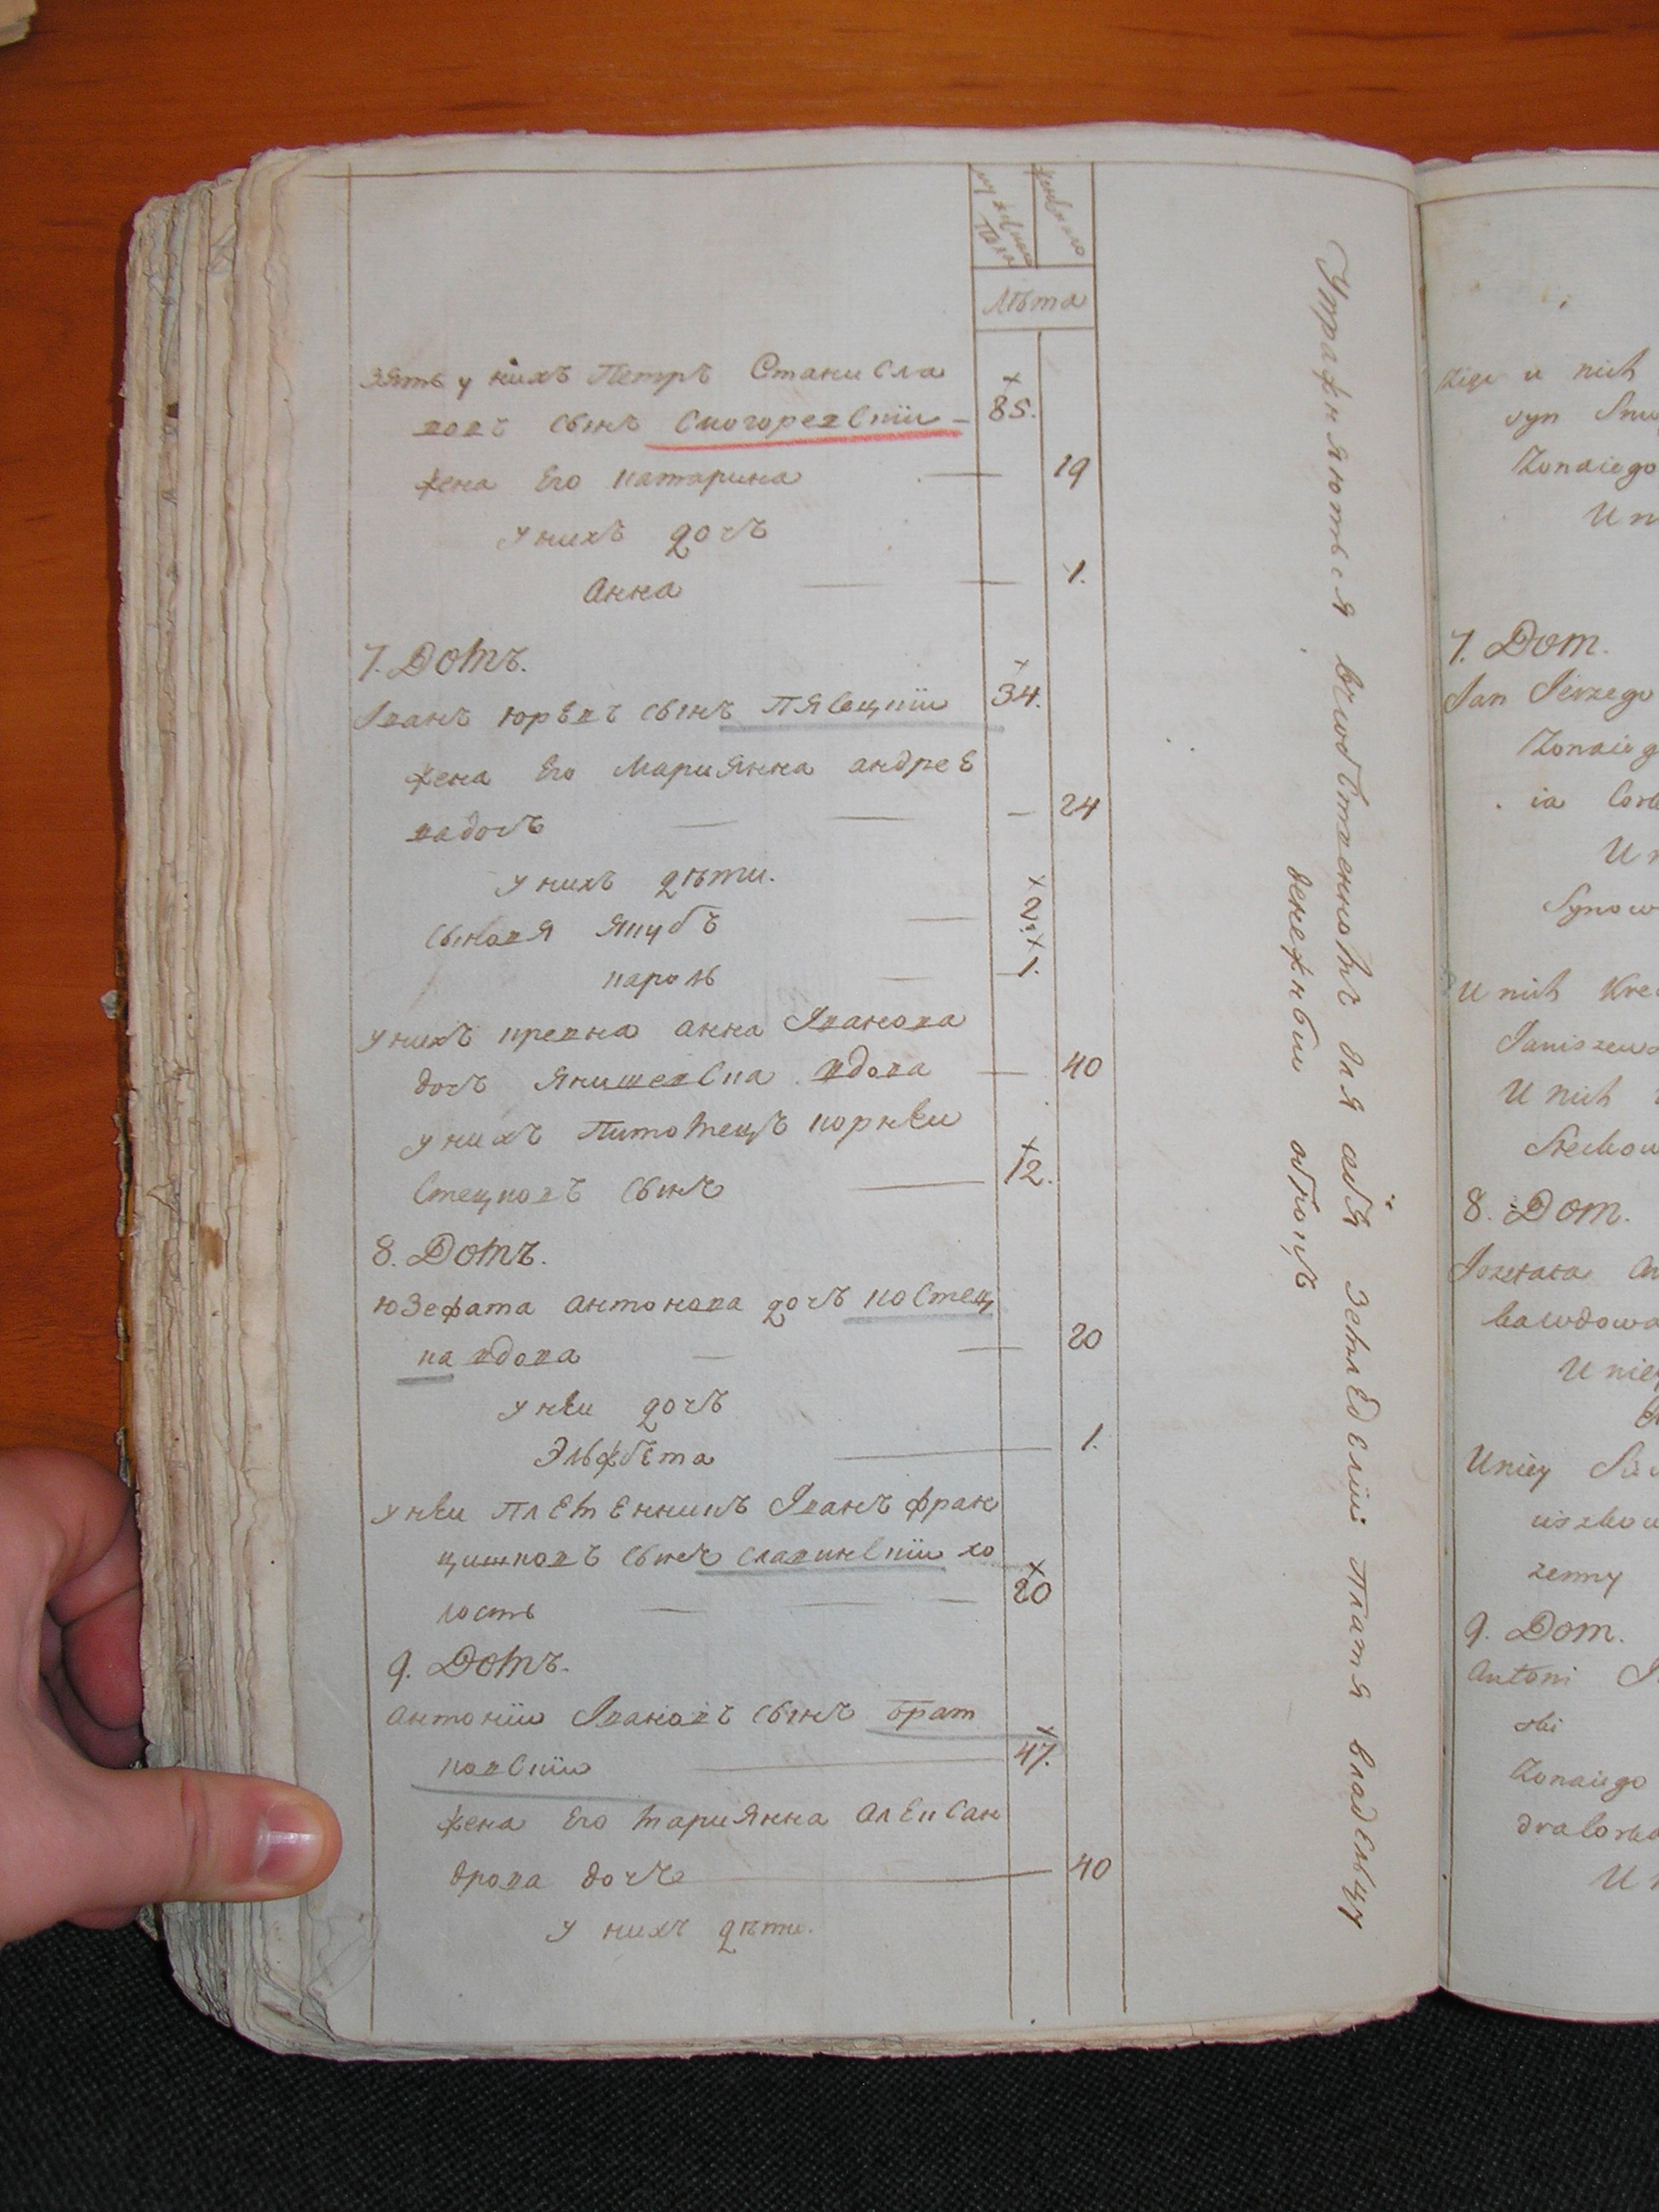 мужеска Пола
женскаго
Лѣта
Зять у нихъ Петръ Станисла
вовъ сынъ Скогоревскій — 85.
жена Его катарина — 19
у нихъ дочь
Анна — 1.
7. Домъ.
Іванъ Юрьевъ сынъ Пясецкій 34.
жена Его Мариянна андрее
ва дочь — 24
у нихъ дѣти.
сыновя Якубъ — 2.
кароль — 1.
у нихъ кревна анна Іванова
дочь Янишевска вдова — 40
у нихъ Питомецъ корнѣй
Стецковъ сынъ — 12.
8. Домъ.
Юзефата антонова дочь костец
ка вдова — 20
у нѣй дочь
Эльжбѣта — 1.
у нѣй Племенникъ Іванъ фран
цишковъ сынъ славинскій хо
лостъ — 20
9. Домъ.
антоній Івановъ сынъ брат
ковскій — 47.
жена Его мариянна алексан
дрова дочь — 40
у нихъ дѣти.
Упражняються въ собственномъ для себя земледеліи платя владельцу
денежный оброкъ
u nich
syn
Zonaiego
U n
7. Dom.
Jan Jerzego
Zonaieg
ia Cork
U n
Synow
U nich Kre
Janiszews
U nich
Steckow
8. Dom.
Jozefata An
ka wdowa
U niey
U niey
ciszkow
zenny
9. Dom.
Antoni
ski
Zonaiego
dra Corka
U n